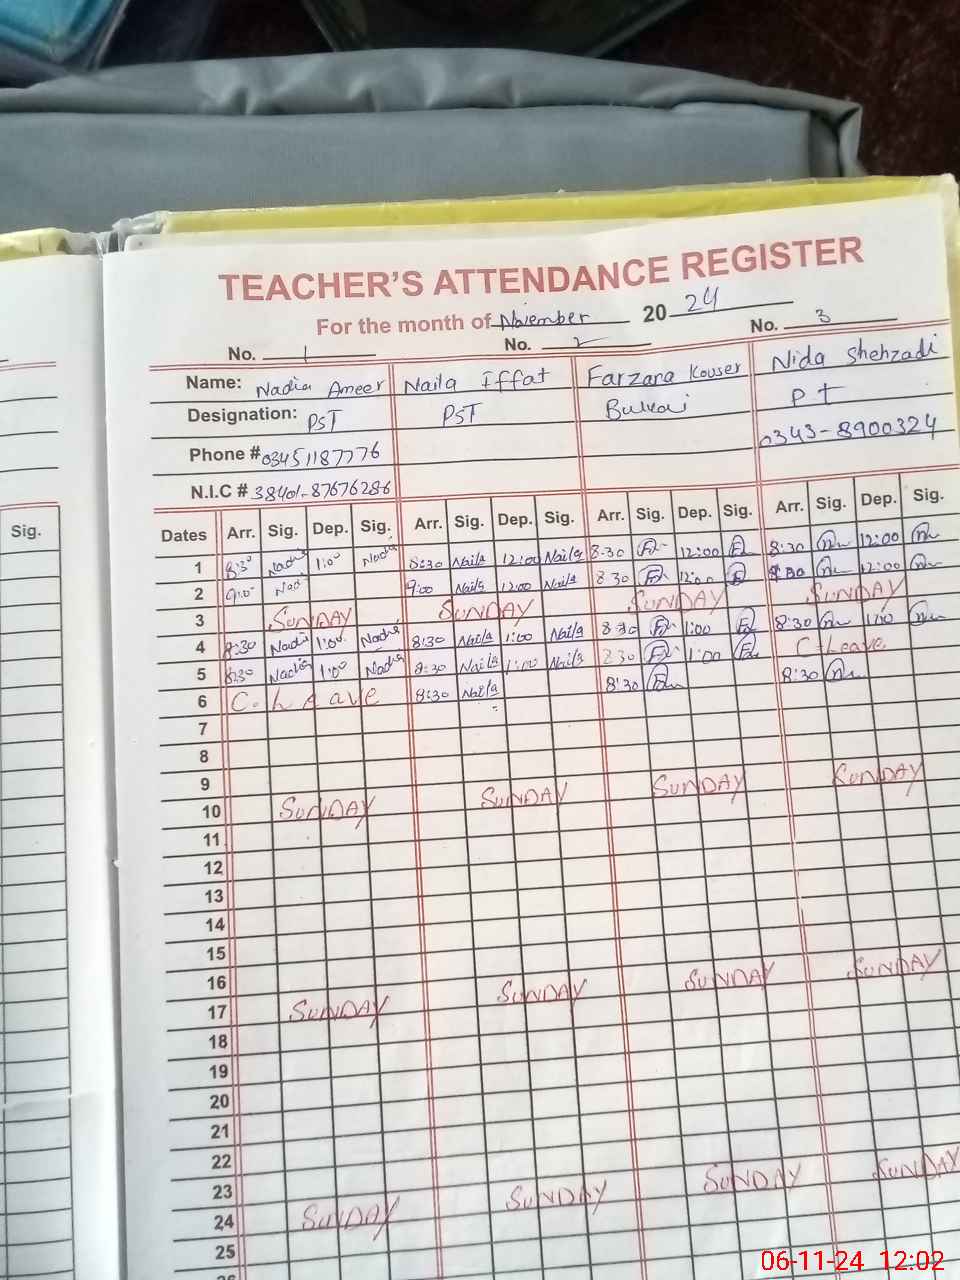 TEACHER'S ATTENDANCE REGISTER
For the month of November 2024
No. 1 No. 2 No. 3
Name: Nadia Ameer Naila Iffat Farzana Kouser Nida Shehzadi
Designation: PST PST P t
Phone # 03451187776 0343-8900324
N.I.C # 38401-87676286
Sig. Dates Arr. Sig. Dep. Sig. Arr. Sig. Dep. Sig. Arr. Sig. Dep. Sig. Arr. Sig. Dep. Sig.
1 8:30 Nadia 1:00 Nadia 8:30 Naila 12:00 Naila 8-30 12:00 8:30 12:00
2 9:00 Nad 9:00 Naila 12:00 Naila 8 30 12:00 8:30 12:00
3 SUNDAY SUNDAY SUNDAY SUNDAY
4 8:30 Nadia 1:00 Nadia 8:30 Naila 1:00 Naila 8:30 1:00 8:30 1:00
5 8:30 Nadia 1:00 Nadia 8:30 Naila 1:00 Naila 1:00 C-Leave
6 C. Leave 8:30 Naila 8:30 8:30
7
8
9
10 SUNDAY SUNDAY SUNDAY SUNDAY
11
12
13
14
15
16
17 SUNDAY SUNDAY SUNDAY SUNDAY
18
19
20
21
22
23
24 SUNDAY SUNDAY SUNDAY SUNDAY
25
06-11-24 12:02